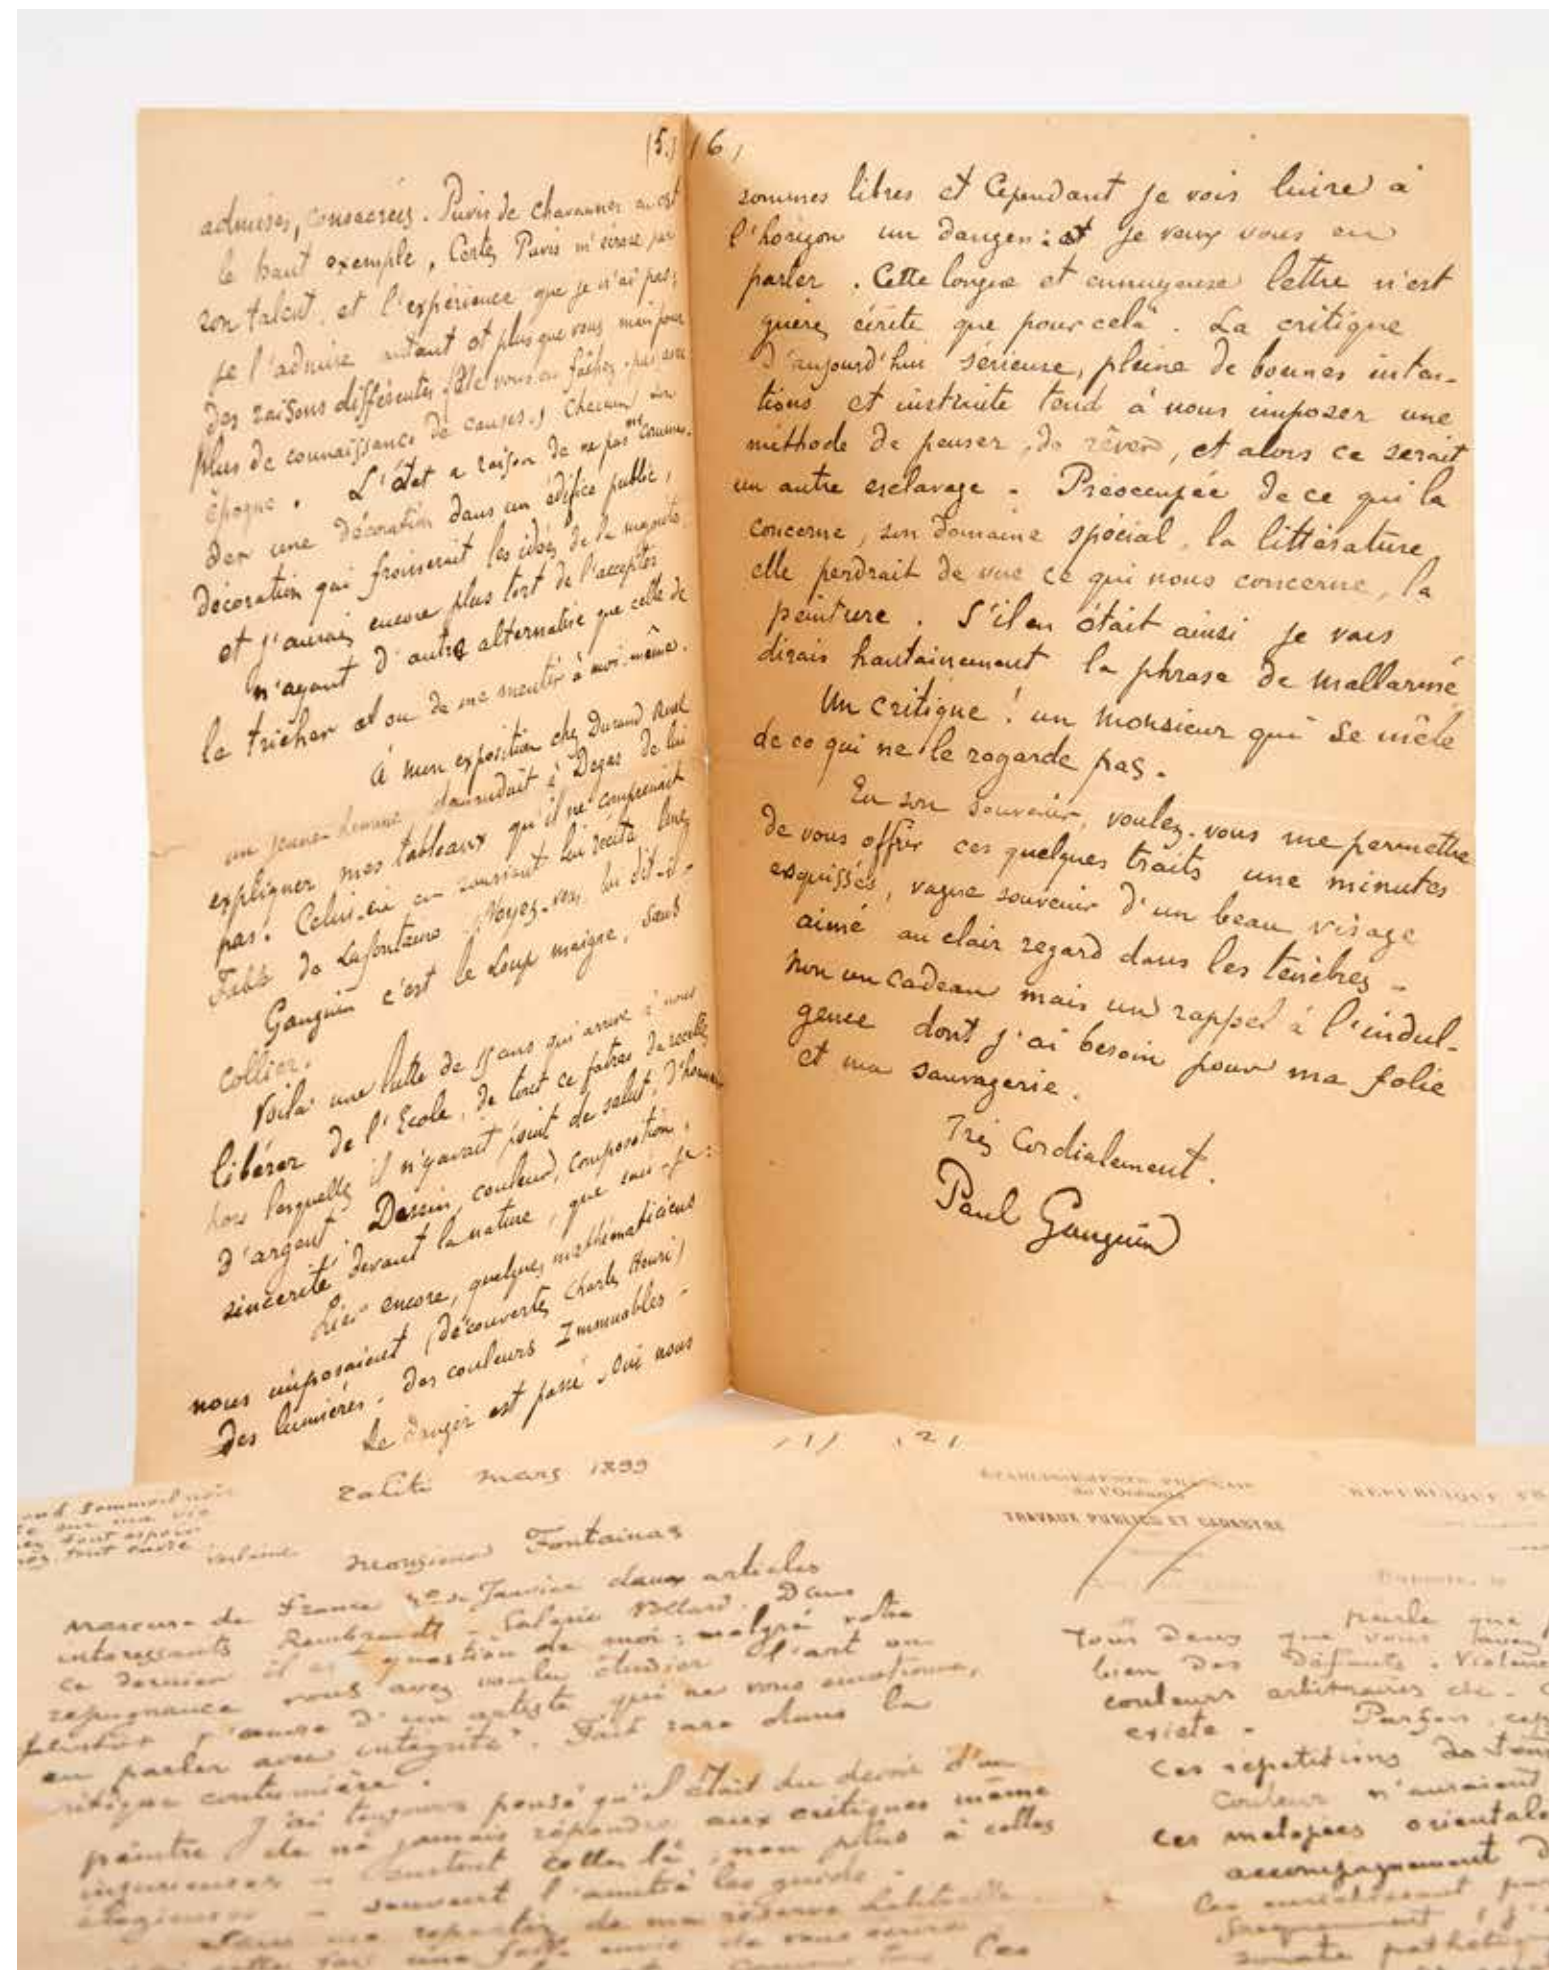 (5.)
admises, consacrées. Puvis de Chavannes en est
le haut exemple, Certes Puvis m'écrase par
son talent, et l'expérience que je n'ai pas;
je l'admire autant et plus que vous mais pour
des raisons différentes (Ne vous en fâchez pas avec
plus de connaissance de causes.) Chacun son
époque. L'état a raison de ne pas me comman-
der une décoration dans un édifice public,
décoration qui froisserait les idées de la majorité
et j'aurais encore plus tort de l'accepter
n'ayant d'autre alternative que celle de
le tricher et ou de me mentir à moi-même.
à mon exposition chez Durand Ruel
un jeune homme demandait à Degas de lui
expliquer mes tableaux qu'il ne comprenait
pas. Celui-ci en souriant lui récita une
Fable de Lafontaine - Voyez-vous lui dit-il -
Gauguin c'est le Loup maigre, sans
collier.
Voilà une lutte de 15 ans qui arrive à nous
libérer de l'Ecole, de tout ce fatras de recettes
hors lesquelles il n'y avait point de salut, d'honneur
d'argent. Dessin, couleur, composition,
sincerité devant la nature, que sais-je:
hier encore, quelques mathématiciens
nous imposaient (découvertes Charles Henri)
des lumières, des couleurs Immuables -
Le danger est passé. Oui nous
(6)
sommes libres et Cependant je vois luire à
l'horizon un danger: et je veux vous en
parler. Cette longue et ennuyeuse lettre n'est
guères écrite que pour celà. La critique
d'aujourd'hui sérieuse, pleine de bonnes inten-
tions et instruite tend à nous imposer une
méthode de penser, de rêver, et alors ce serait
un autre esclavage. Préoccupée de ce qui la
concerne, son domaine spécial, la littérature,
elle perdrait de vue ce qui nous concerne, la
peinture. S'il en était ainsi je vous
dirais hautainement la phrase de Mallarmé
Un critique! un Monsieur qui se mêle
de ce qui ne le regarde pas.
En son souvenir, voulez-vous me permettre
de vous offrir ces quelques traits une minutes
esquissés, vague souvenir d'un beau visage
aimé au clair regard dans les ténèbres -
non un cadeau mais un rappel à l'indul-
gence dont j'ai besoin pour ma folie
et ma sauvagerie.
Très Cordialement.
Paul Gauguin
(1)
Tahiti mars 1899
Monsieur Fontainas
Mercure de France Janvier deux articles
interessants Rembrandt - Galerie Vollard. Dans
ce dernier il est question de moi; malgré votre
repugnance vous avez voulu étudier l'art ou
l'œuvre d'un artiste qui ne vous emotionne,
en parler avec intégrité. Fait rare dans la
critique coutumière.
J'ai toujours pensé qu'il était du devoir d'un
peintre de ne jamais répondre aux critiques même
injurieuses - surtout celles là, non plus à celles
élogieuses - souvent l'amitié les guide.
Sans me départir de ma réserve habituelle
une folle envie de vous écrire
(2)
ÉTABLISSEMENTS FRANÇAIS
de l'Océanie
TRAVAUX PUBLICS ET CADASTRE
parle que
tous deux que vous
bien des défauts. Violence
couleurs arbitraires etc.
existe - Parfois
ces répétitions de tons
Couleur n'auraient
ces melopées orientales
accompagnement